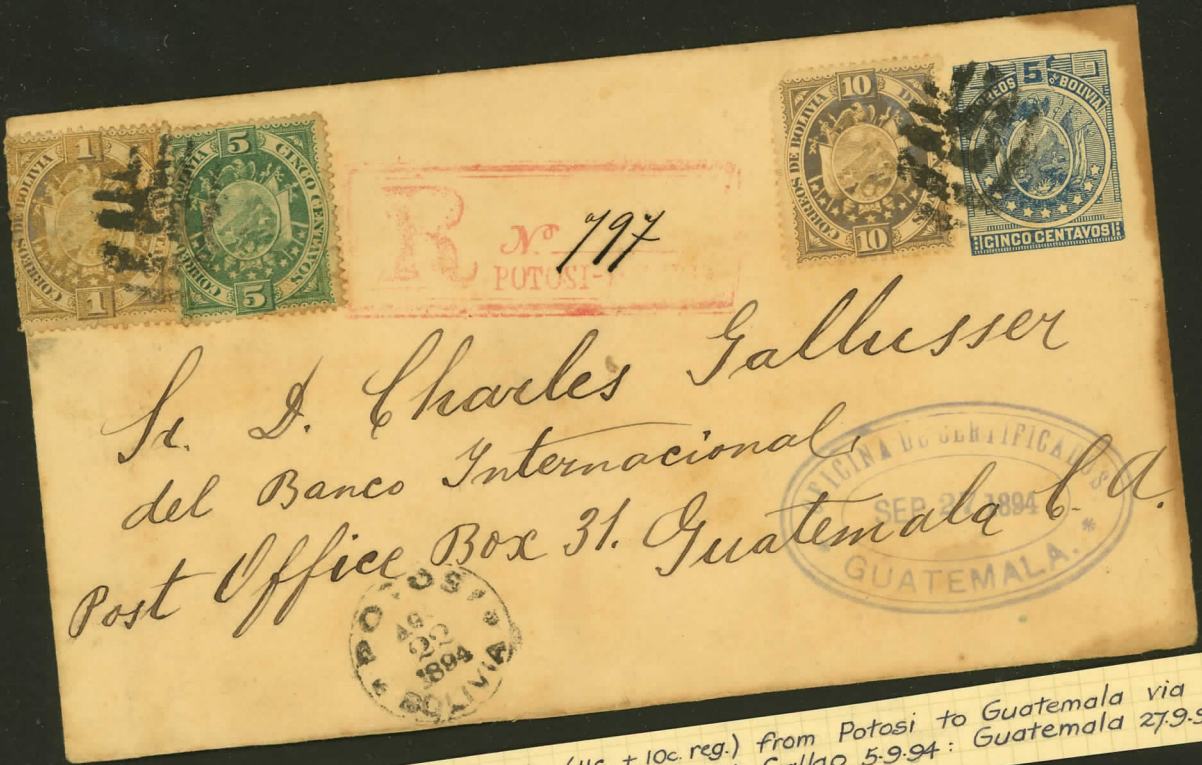 CORREOS DE BOLIVIA
1
1
5
CINCO CENTAVOS
5
R
No 797
POTOSI-
CORREOS DE BOLIVIA
10
10
CORREOS 5 DE BOLIVIA
CINCO CENTAVOS
Sr. D. Charles Gallusser
del Banco Internacional,
Post Office Box 31. Guatemala C. A.
OFICINA DE CERTIFICADOS
SEP 27 1894
GUATEMALA. *
POTOSI
AG.
22
1894
BOLIVIA
+ 10c. reg.) from Potosi to Guatemala via
Callao 5.9.94: Guatemala 27.9.9